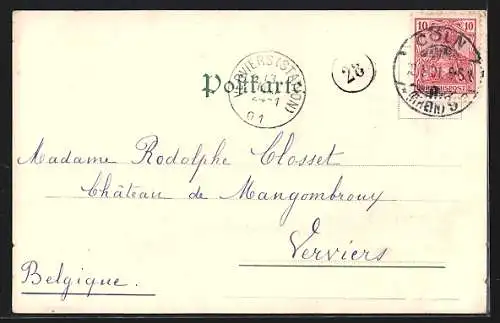 10
CÖLN
(RHEIN)
VERVIERS (STATION)
01
28
Postkarte
Madame Rodolphe Closset
Château de Mangombroux
Verviers
Belgique.